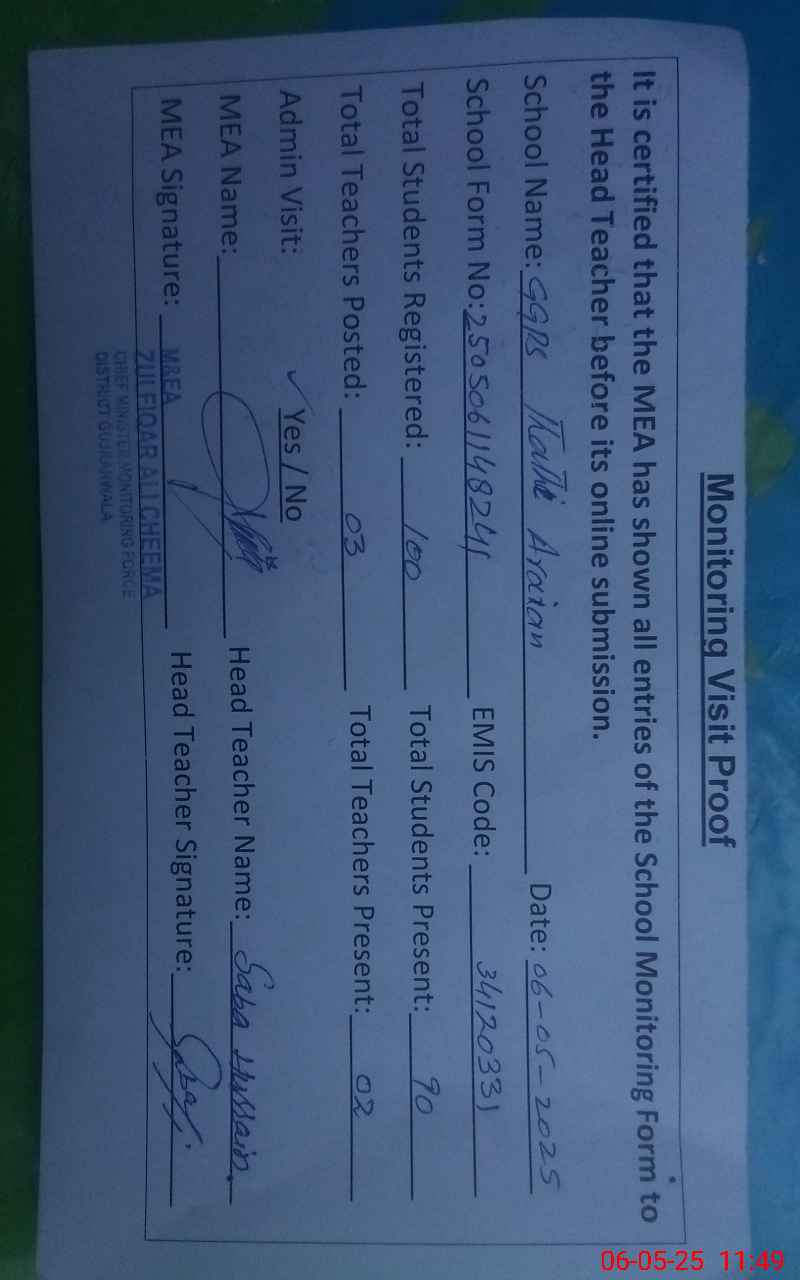 Monitoring Visit Proof
It is certified that the MEA has shown all entries of the School Monitoring Form to
the Head Teacher before its online submission.
School Name: GGPS Kathi Araian Date: 06-05-2025
School Form No: 2505061148241 EMIS Code: 34120331
Total Students Registered: 100 Total Students Present: 90
Total Teachers Posted: 03 Total Teachers Present: 02
Admin Visit: ✓ Yes / No
MEA Name: Head Teacher Name: Saba Hussain.
MEA Signature: Head Teacher Signature: Saba
M&EA
ZULFIQAR ALI CHEEMA
CHIEF MINISTER MONITORING FORCE
DISTRICT GUJRANWALA
06-05-25 11:49